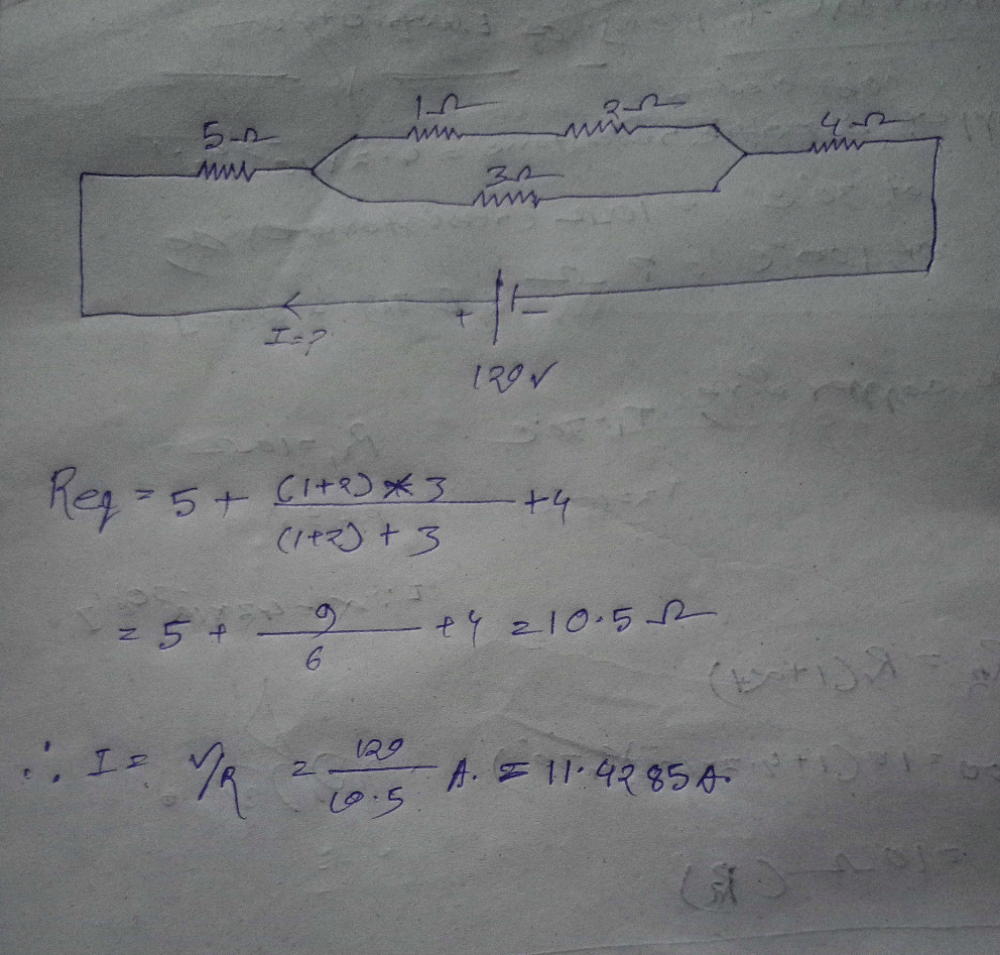 5Ω 1Ω 2Ω 4Ω
3Ω
+ −
I=?
120V
Req = 5 + (1+2)*3 / (1+2)+3 + 4
= 5 + 9/6 + 4 = 10.5 Ω
∴ I = V/R = 120/10.5 A. = 11.4285A.